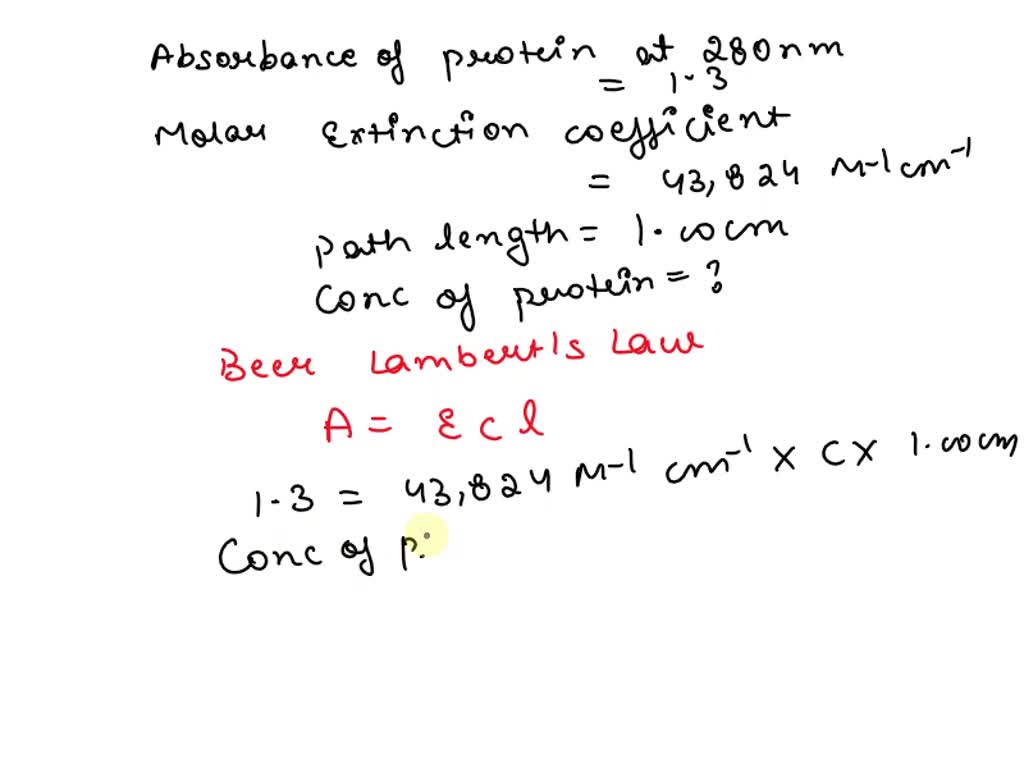 Absorbance of protein at 280nm
= 1.3
Molar Extinction coefficient
= 43,824 M-1 cm-1
Path length = 1.00cm
Conc of protein = ?
Beer Lambert's Law
A = ε c l
1.3 = 43,824 M-1 cm-1 × C × 1.00cm
Conc of P